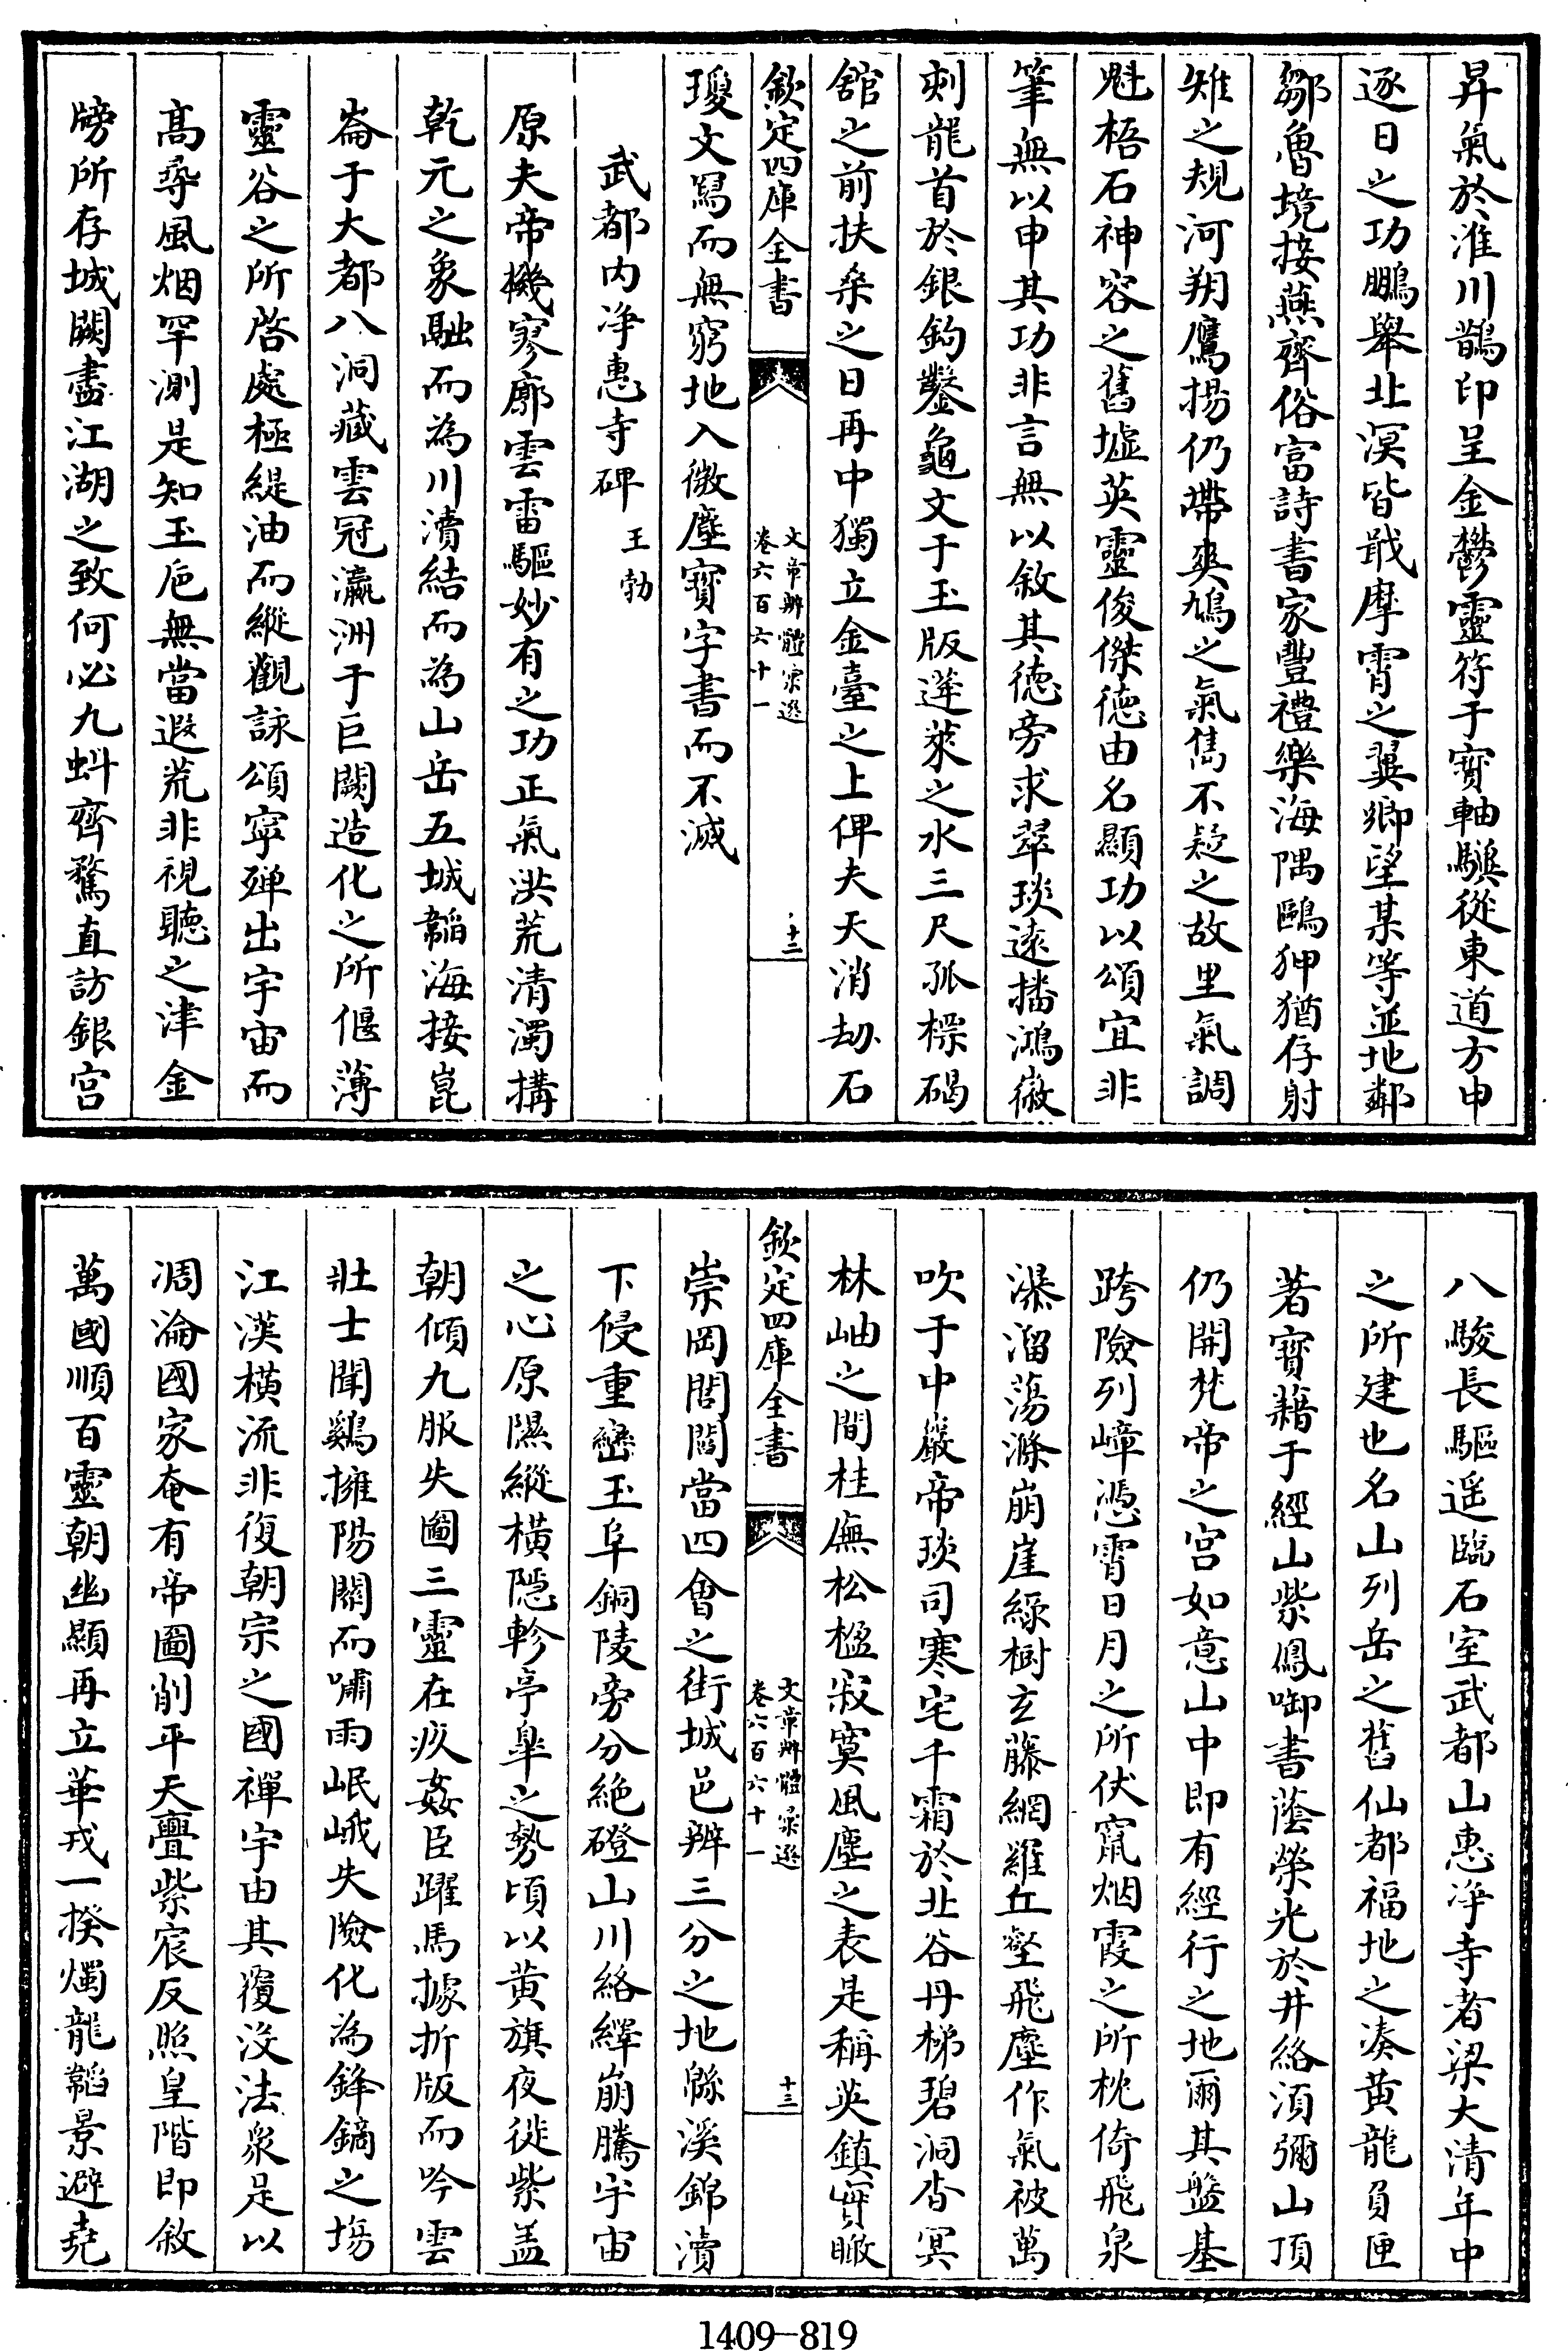 昇氣於淮川鵲印呈金鬱靈符于寳軸驥從東道方申
逐日之功鵬舉北溟皆戢摩霄之翼卿望某等並地鄰
鄒魯境接燕齊俗富詩書家豐禮樂海隅鷗狎猶存射
雉之規河朔鷹揚仍帶爽鳩之氣雋不疑之故里氣調
魁梧石神容之舊墟英靈俊傑徳由名顯功以頌宜非
筆無以申其功非言無以敘其徳旁求翠琰遠播鴻徽
刻龍首於銀鈎鑿龜文于玉版蓬萊之水三尺孤標碣
舘之前扶桒之日再中獨立金臺之上俾夫天消劫石
欽定四庫全書
文章辨體彚選
卷六百六十一
十二
瓊文冩而無窮地入微塵寳字書而不滅
武都内浄惠寺碑 王勃
原夫帝機寥廓雲雷驅妙有之功正氣洪荒清濁搆
乾元之象融而為川瀆結而為山岳五城韜海接崑
崙于大都八洞藏雲冠瀛洲于巨闕造化之所偃薄
靈谷之所啓處極緹油而縱觀詠頌寧殫出宇宙而
髙尋風烟罕測是知玉巵無當遐荒非視聽之津金
牓所存城闕盡江湖之致何必九虯齊騖直訪銀宫
八駿長驅遥臨石室武都山惠浄寺者梁大清年中
之所建也名山列岳之舊仙都福地之凑黄龍負匣
著寳籍于經山紫鳳啣書蔭榮光於井絡湏彌山頂
仍開梵帝之宫如意山中即有經行之地爾其盤基
跨險列嶂憑霄日月之所伏竄烟霞之所枕倚飛泉
瀑溜蕩滌崩崖緑樹玄藤網羅丘壑飛塵作氣被萬
吹于中巖帝琰司寒宅千霜於北谷丹梯碧洞杳冥
林岫之間桂廡松楹寂寞風塵之表是稱英鎮實瞰
欽定四庫全書
文章辨體彚選
卷六百六十一
十三
崇岡閭閻當四會之街城邑辨三分之地緜溪錦瀆
下侵重巒玉阜銅陵旁分絶磴山川絡繹崩騰宇宙
之心原隰縱横隠軫亭臯之勢頃以黄旗夜徙紫盖
朝傾九服失圖三靈在疚姦臣躍馬據折版而吟雲
壯士聞鷄擁陽關而嘯雨岷峨失險化為鋒鏑之塲
江漢横流非復朝宗之國禪宇由其覆没法衆是以
凋淪國家奄有帝圖削平天亹紫宸反照皇階即敘
萬國順百靈朝幽顯再立華戎一揆燭龍韜景避堯
1409—819